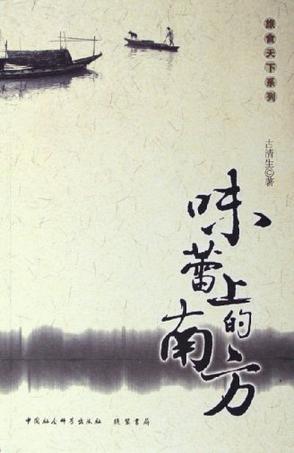 旅食天下系列
古清生◎著
味蕾上的南方
中国社会科学出版社 线装书局